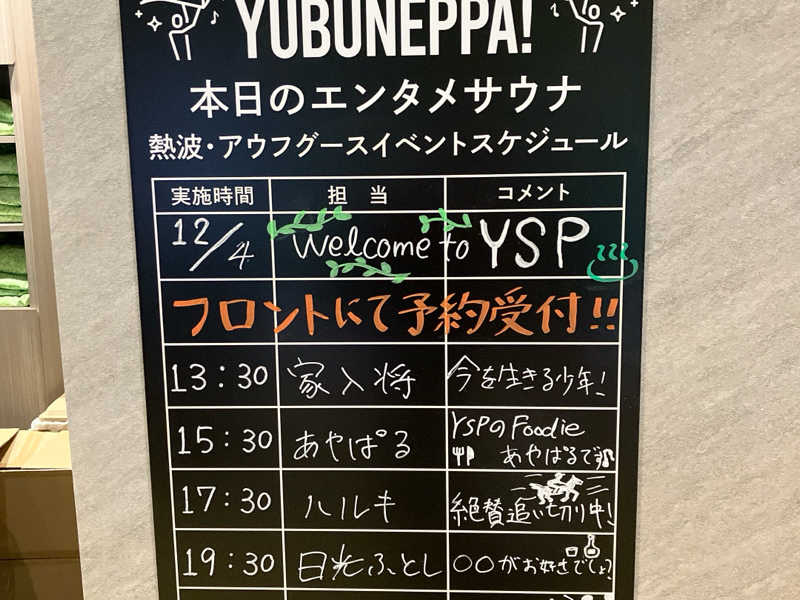 YUBUNEPPA!
本日のエンタメサウナ
熱波・アウフグースイベントスケジュール
実施時間 担当 コメント
12/4 Welcome to YSP
フロントにて予約受付!!
13:30 家入将 今を生きる少年!
15:30 あやぱる YSPのFoodie
あやぱるです
17:30 ハルキ 絶賛追い切り中!
19:30 日光ふとし 〇〇がお好きでしょ?